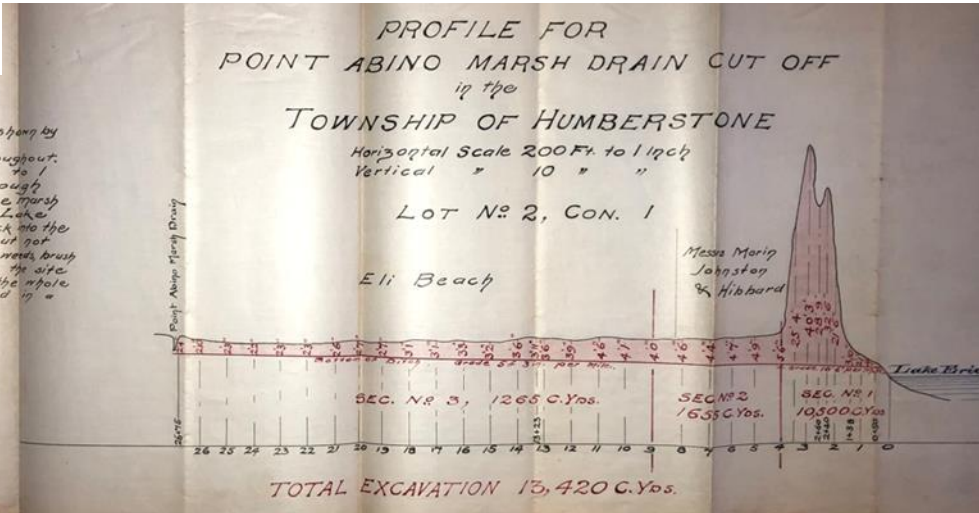 PROFILE FOR
POINT ABINO MARSH DRAIN CUT OFF
in the
TOWNSHIP OF HUMBERSTONE
Horizontal Scale 200 Ft. to 1 Inch
Vertical " 10 " "
LOT No 2, CON. 1
shown by
oughout.
to 1
ough
e marsh
Lake
ck into the
ut not
weeds, brush
the site
the whole
d in a
Point Abino Marsh Drain
Eli Beach
Messrs Morin
Johnston
& Hibbard
Lake Erie
Bottom of Ditch Grade per Mile
SEC. No 3, 1265 C. YDS.
SEC No 2
1655 C. YDS.
SEC. No 1
10,500 C. YDS
26+75
13+23
2+60
2+40
1+38
0+50
26 25 24 23 22 21 20 19 18 17 16 15 14 13 12 11 10 9 8 7 6 5 4 3 2 1 0
TOTAL EXCAVATION 13,420 C. YDS.